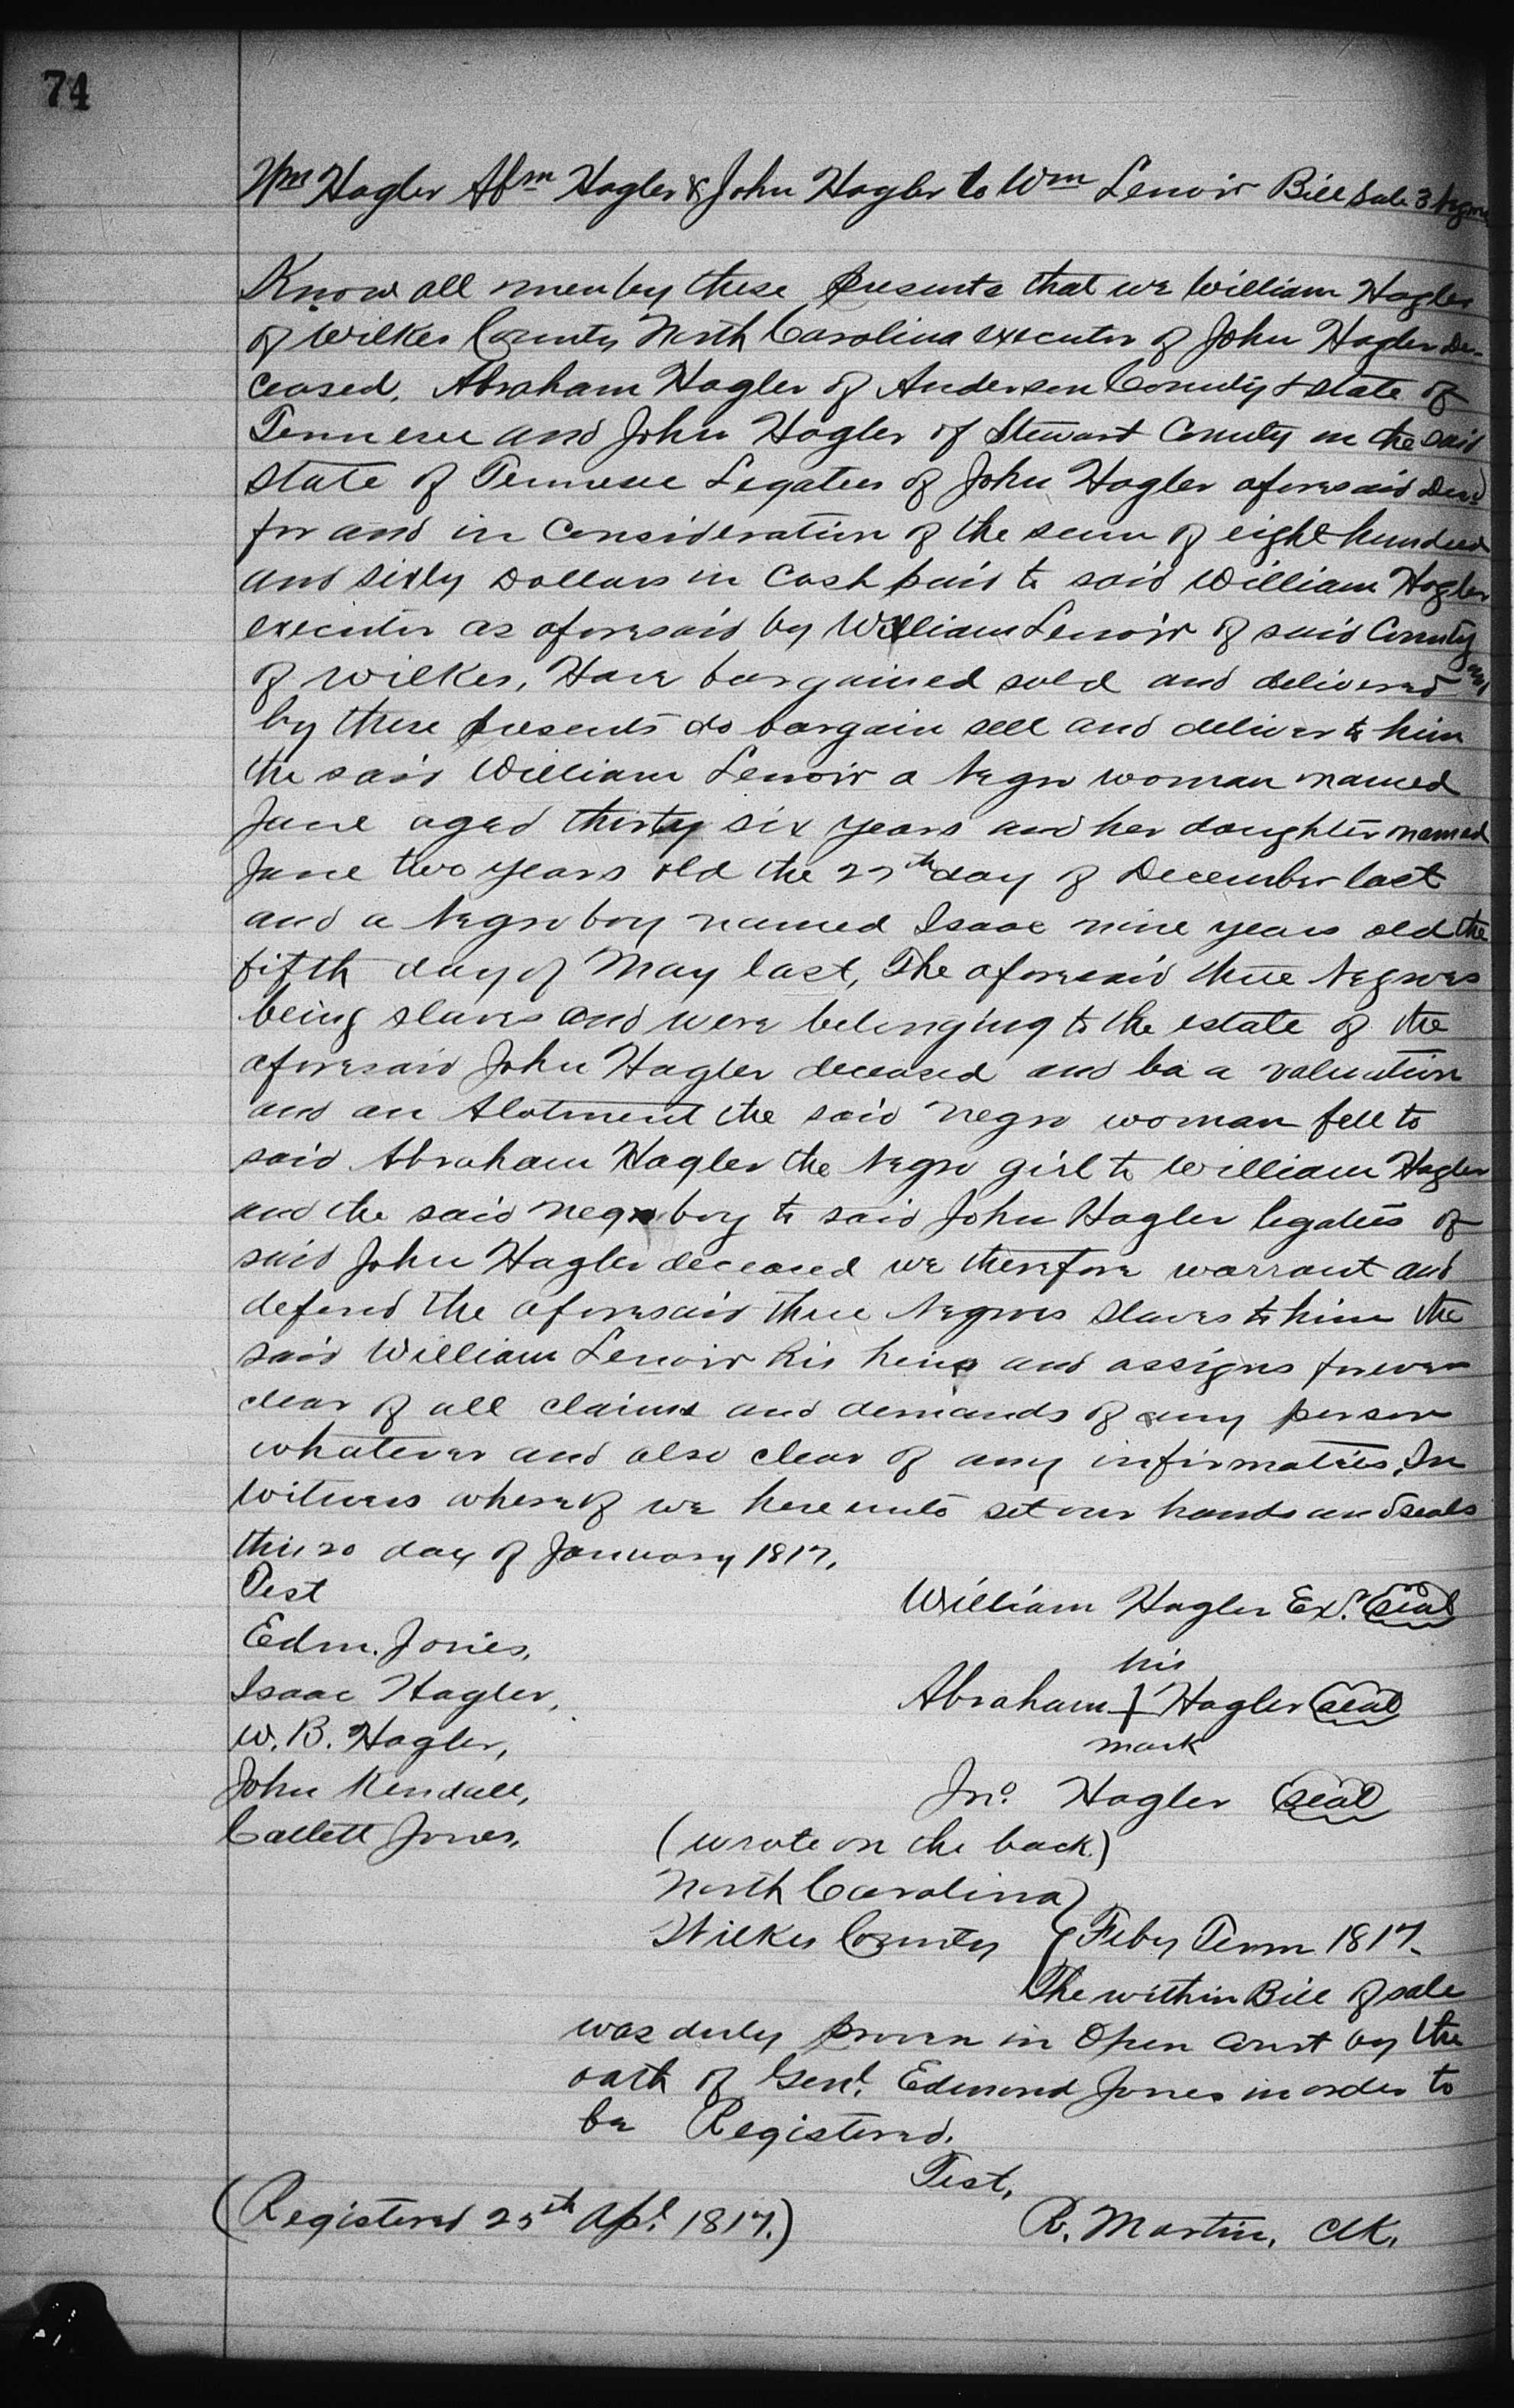 74
Wm Hagler Abm Hagler & John Hagler to Wm Lenoir Bill Sale 3
Know all men by these presents that we William Hagler
of Wilkes County North Carolina executor of John Hagler De-
ceased, Abraham Hagler of Anderson County & state of
Tennesee and John Hagler of Stewart County in the said
state of Tennesee Legatees of John Hagler aforesaid Decd
for and in Consideration of the sum of eight hundred
and sixty Dollars in Cash paid to said William Hagler
executor as aforesaid by William Lenoir of said County
of Wilkes, Have bargained sold and delivered and
by these presents do bargain sell and deliver to him
the said William Lenoir a Negro woman named
Jane aged thirty six years and her daughter named
Jane two years old the 27th day of December last
and a Negro boy named Isaac nine years old the
fifth day of May last, The aforesaid three Negroes
being slaves and were belonging to the estate of the
aforesaid John Hagler deceased and ba a valuation
and an Alotment the said negro woman fell to
said Abraham Hagler the Negro girl to William Hagler
and the said negro boy to said John Hagler legatees of
said John Hagler deceased we therefore warrant and
defend the aforesaid three Negroes slaves to him the
said William Lenoir his heirs and assigns forever
clear of all claims and demands of any person
whatever and also clear of any infirmaties, In
witness whereof we here unto set our hands and seals
this 20 day of January 1817.
Test
William Hagler Exr. Seal
Edm. Jones,
his
Isaac Hagler,
Abraham + Hagler seal
W. B. Hagler,
mark
John Kendall,
Jno. Hagler seal
Catlett Jones,
(wrote on the back.)
North Carolina
Wilkes County } Feby Term 1817.
The within Bill of sale
was duly proven in Open Court by the
oath of Genl. Edmond Jones in order to
be Registered.
Test,
(Registered 25th Apl. 1817.)
R. Martin, Clk.